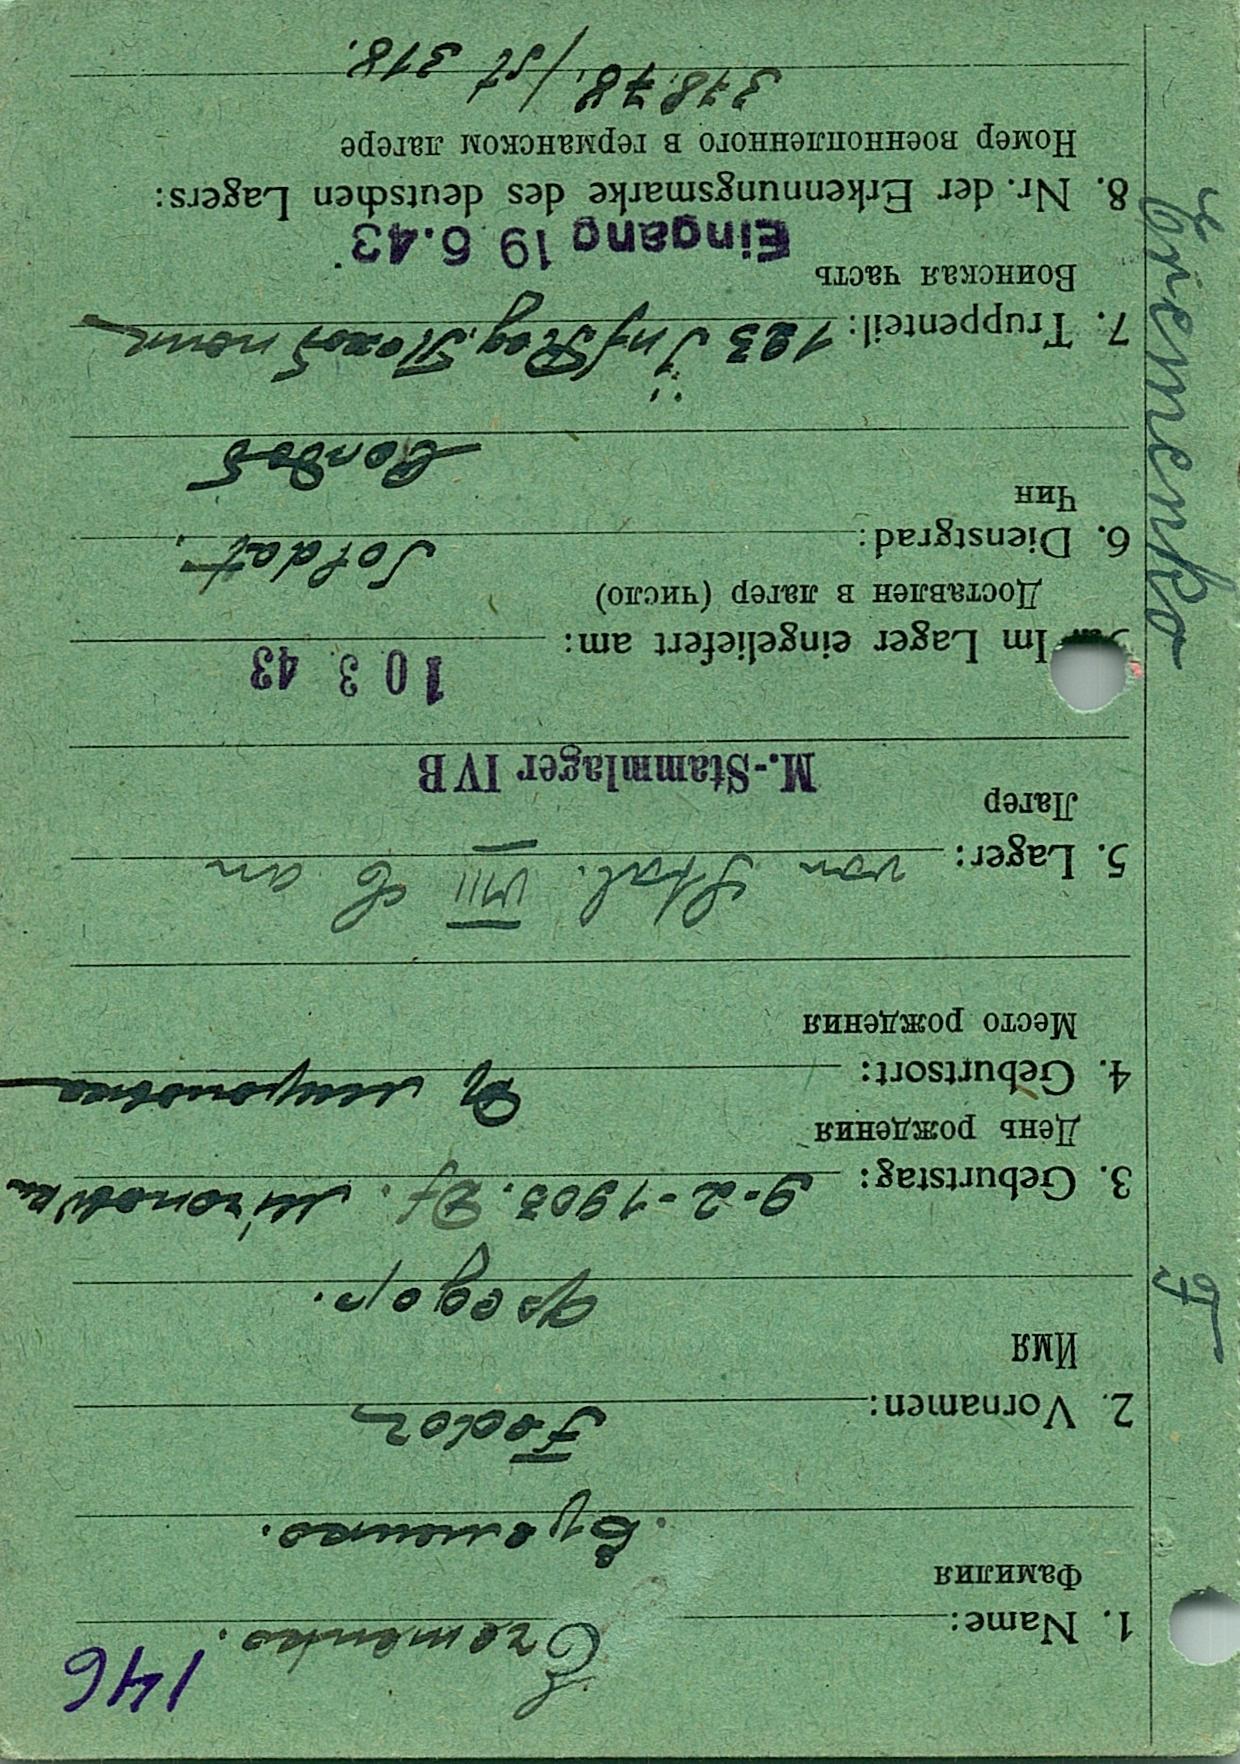 146
1. Name: Eremenko.
Фамилия
Еременко.
2. Vornamen: Fedor
Имя
Федор.
3. Geburtstag: 9-2-1903. Df. Mironowka
День рождения
4. Geburtsort: Д Мироновка
Место рождения
5. Lager: von Stal. VIII C an
Лагер
M.-Stammlager IVB
5a. Im Lager eingeliefert am: 10 3 43
Доставлен в лагер (число)
6. Dienstgrad: Soldat.
Чин
Солдат
7. Truppenteil: 123 Inf Reg.
Воинская часть
Eingang 19 6.43
8. Nr. der Erkennungsmarke des deutschen Lagers:
Номер военнопленного в германском лагере
31878. / St 318.
Eremenko
F